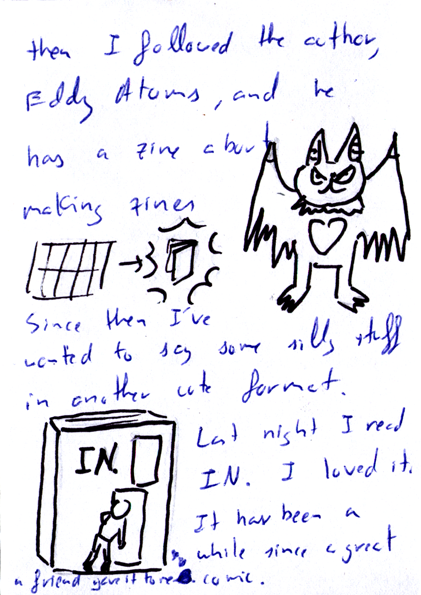 then I followed the author,
Eddy Atoms, and he
has a zine about
making zines
Since then I've
wanted to say some silly stuff
in another cute format.
IN.
Last night I read
IN. I loved it.
It has been a
while since a great
comic.
a friend gave it to me